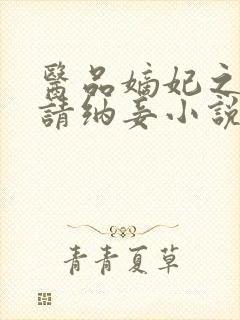 醫品嫡妃之
請納妾小説
青青夏草